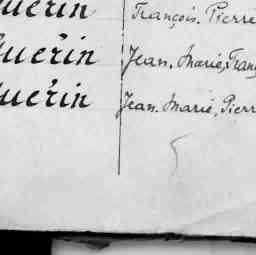 uérin François. Pierre
uérin Jean. Marie, Franç
uérin Jean. Marie, Pierr